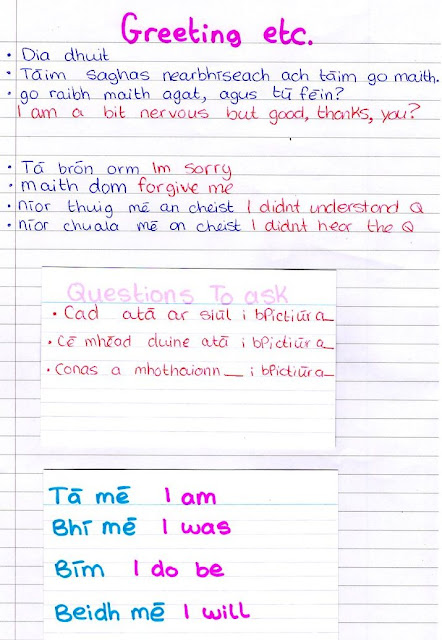 Greeting etc.
• Dia dhuit
• Tāim saghas nearbhīseach ach tāim go maith.
• go raibh maith agat, agus tū fēin?
I am a bit nervous but good, thanks, you?
• Tā brōn orm Im sorry
• maith dom forgive me
• nīor thuig mē an cheist I didnt understand Q
• nīor chuala mē an cheist I didnt hear the Q
Questions To ask
• Cad atā ar siūl i bpictiūra_
• Cē mhēad duine atā i bpictiūra_
• Conas a mhothaionn__ i bpictiūra_
Tā mē I am
Bhī mē I was
Bīm I do be
Beidh mē I will